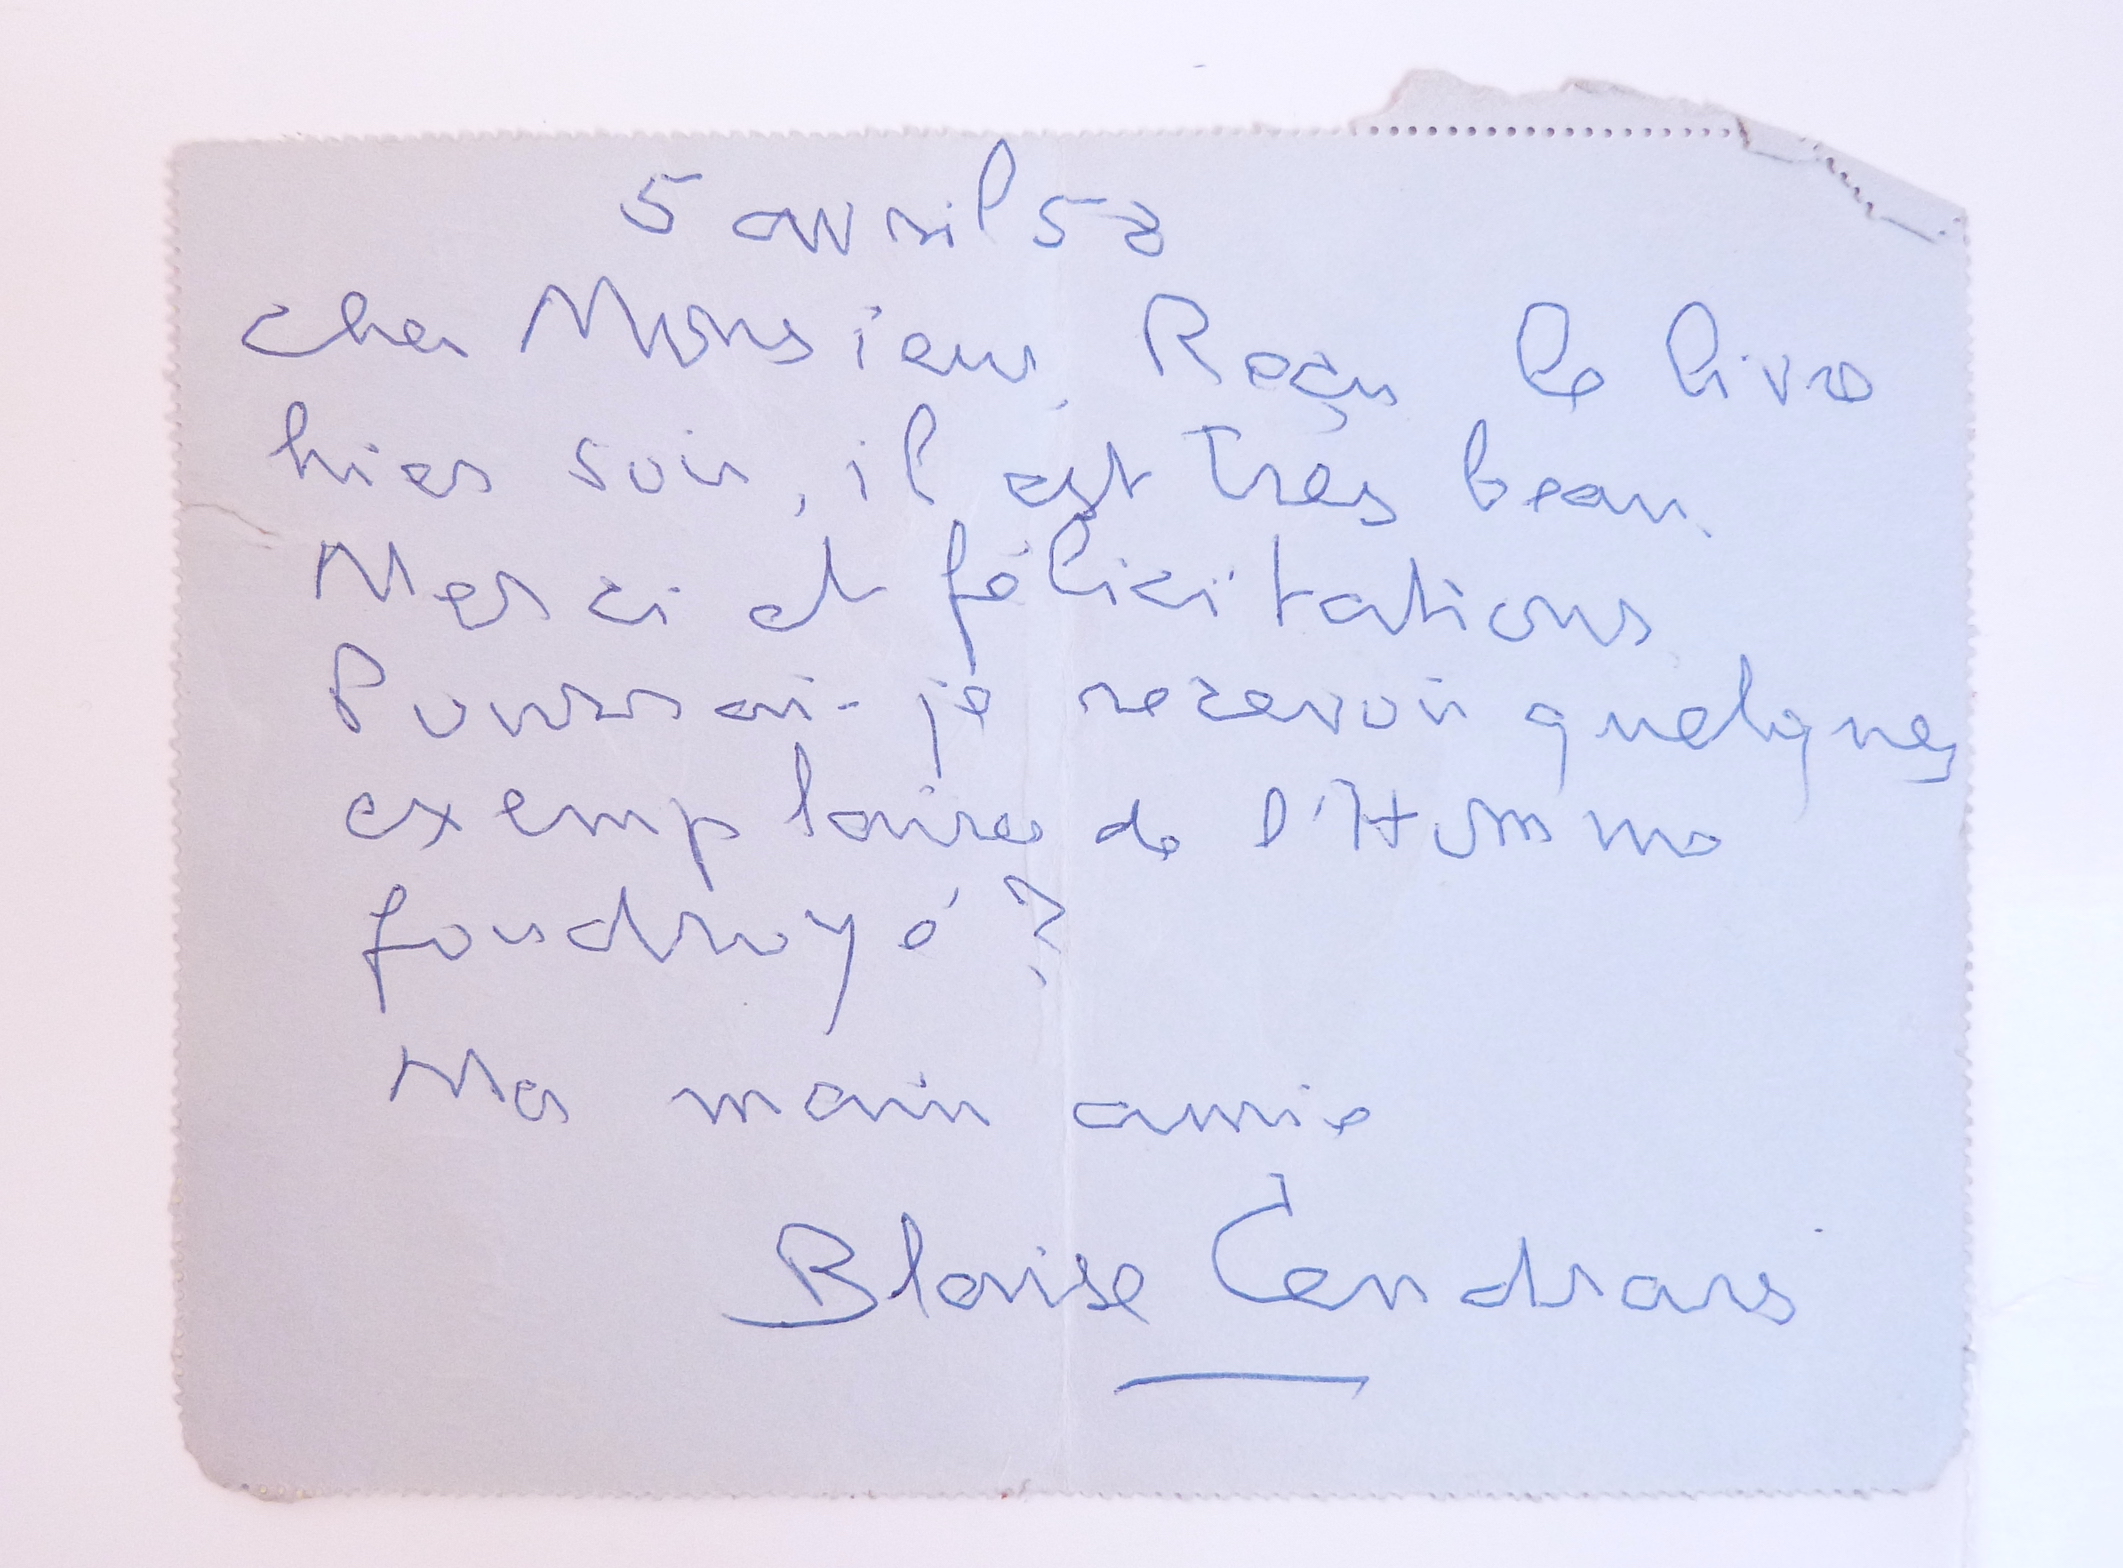 5 avril 58
cher Monsieur, Reçu le livre
hier soir, il est très beau.
Merci et félicitations
Pourrai-je recevoir quelques
exemplaires de l'Homme
foudroyé?
Ma main amie
Blaise Cendrars